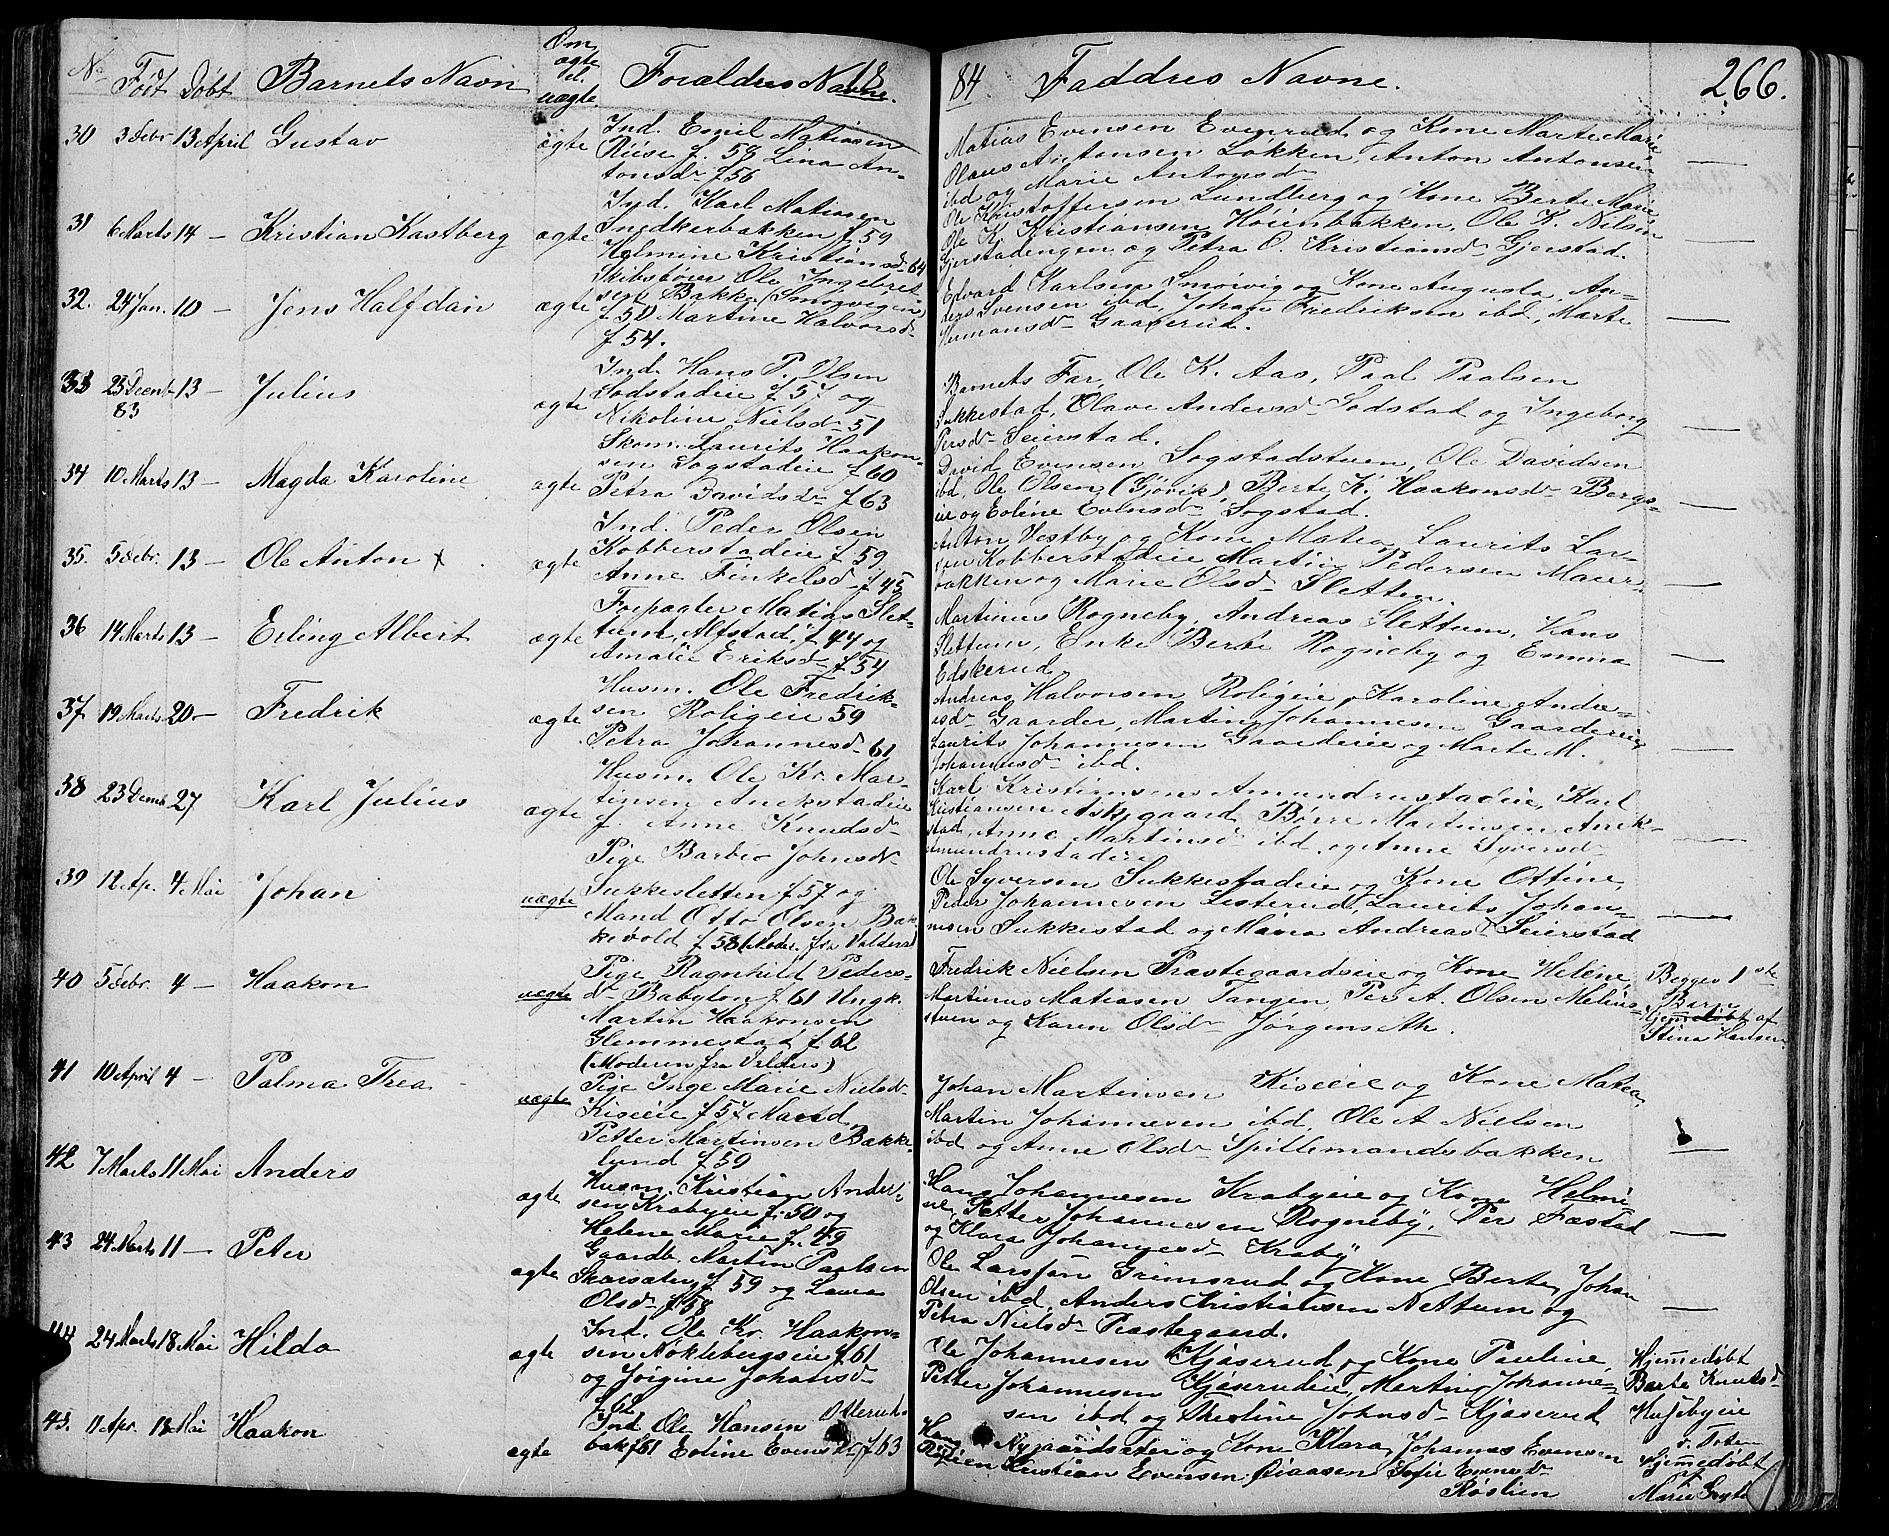 No Født Døbt Barnets Navn Om ægte el. uægte. Forældres Navne. 18
84. Faddres Navne. 266.
30 3 Febr. 13 April Gustav ægte
Ind. Emil Matiasen
Riise f. 58 Lina An-
tonsd. f 56
Matias Evensen Evenrud og Kone Marte Marie
Olaus Antonsen Løkken, Anton Antonsen
ibd og Marie Antonsd.
31 6 Marts 14 — Kristian Kastberg ægte
Ind. Karl Matiasen
Snedkerbakken f. 59
Helmine Kristiansd. 64
Ole Kristoffersen Lundberg og Kone Berte Marie,
Ole K. Kristiansen Høienbakken, Ole K. Nilsen
Gjerstadengen og Petra O. Kristiansd. Gjerstad.
32. 24 Jan. 10 — Jens Halfdan ægte
Skibsfører Ole Ingebret-
sen Bakke (Smørvigen)
f. 50 Martine Halvorsd.
f 54.
Edvard Karlsen Smørvig og Kone Augusta, An-
ders Svensen ibd, Johan Fredriksen ibd, Marte
Hermansd. Gaaserud.
33 23 Decemb. 83 13 — Julius ægte
Ind. Hans P. Olsen
Sodstadeie f. 57 og
Nikoline Nielsd. 51
Barnets Far, Ole K. Aas, Paal Paalsen
Sukkestad, Olave Andersd. Sodstad og Ingeborg
Persd. Seierstad.
34 10 Marts 13 — Magda Karoline ægte
Skom. Laurits Haakon-
sen Sogstadeie f 60
Petra Davidsd. f 63
David Evensen Sogstadstuen, Ole Davidsen
ibd, Ole Olsen (Gjøvik), Berte K. Haakonsd. Bergs-
eie og Eoline Evensd. Sogstad.
35. 5 Febr. 13 — Ole Anton ægte
Ind. Peder Olsen
Kobberstadeie f. 59,
Anne Finkelsd. f 45
Anton Vestby og Kone Matea, Laurits Lar-
sen Kobberstadeie Martin Pedersen Maur-
bakken og Marie Olsd. Sletten.
36 14 Marts 13 — Erling Albert ægte
Forpagter Matias Slet-
tum, Alfstad, f. 44 og
Amalie Eriksd. f 54
Martinus Rogneby, Andreas Slettum, Hans
Slettum, Enke Berte Rogneby og Emma
Edskerud
37 19 Marts 20 — Fredrik ægte
Husm. Ole Fredrik-
sen Roligeie 59
Petra Johannesd. 61
Andreas Halvorsen Roligeie, Karoline Andre-
asd. Gaarder, Martin Johannesen Gaardereie
Laurits Johannesen Gaardereie og Marte M.
Johannesd. ibd.
38 23 Decemb. 27 Karl Julius ægte
Husm. Ole Kr. Mar-
tinsen Anekstadeie
f. Anne Knudsd.
Karl Kristiansen Amundrustadeie, Karl
Kristiansen Askjgaard, Børre Martinsen Anek-
stad, Anne Martinsd. ibd. og Anne Syversd.
Amundrustadeie
39 12 Ap. 4 Mai Johan uægte
Pige Barbro Johnsd.
Sukkesletten f 57 og
Mand Otto Olsen Bak-
kevold f 58 (Moder. fra Valders)
Ole Syversen Sukkestadeie og Kone Ottine,
Peder Johannesen Listerud, Laurits Johan-
nesen Sukkestad og Maria Andreasd. Seierstad
40 5 Febr. 4 — Haakon uægte
Pige Ragnhild Peders-
d. Babylon f. 61 Ungk.
Martin Haakonsen
Glemmestad f. 62
(Moderen fra Valders)
Fredrik Nielsen Præstegaardseie og Kone Helene,
Martinus Matiasen Tangen, Per A. Olsen Melins-
stuen og Karen Olsd. Jørgens
Begges 1ste
Barn
Hjemmedøbt af
Stina Hansen
41 10 April 4 — Palma Trea uægte
Pige Inge Marie Nielsd.
Kiseeie f. 57 Mand
Petter Martinsen Bakke-
lund f 59
Johan Martinsen Kiseeie og Kone Matea,
Martin Johannesen ibd, Ole A Nielsen
ibd og Anne Olsd. Spillemandsbakken
42 7 Marts 11 Mai Anders ægte
Husm. Kristian Ander-
sen Krabyeie f. 50 og
Helene Marie f. 49
Hans Johannesen Krabyeie og Kone Helmi-
ne, Petter Johannesen Rogneby, Per Fæstad
og Klara Johannesd. Kraby
43 24 Marts 11 — Peter ægte
Gaardb. Martin Paulsen
Skarsæter f 59 og Laura
Olsd. f 58
Ole Larssen Grimsrud og Kone Berte, Johan
Olsen ibd, Anders Kristiansen Nettum og
Petra Nielsd. Præstegaard.
44 24 Marts 18 Mai Hilda ægte
Ind. Ole Kr. Haakon-
sen Nøklebergseie f 61
og Jørgine Johansd.
f 62
Ole Johannesen Kjøserud og Kone Pauline,
Petter Johannesen Kjøserudeie, Martin Johanne-
sen ibd og Kristine Johnsd. Kjøserud
Hjemmedøbt
Berte Knutsd.
Husebyeie
v. Toten
45. 11 Apr. 18 Mai Haakon ægte
Ind Ole Hansen Ottersh.
bak f 61 Eoline Evensd. f 63
Hans Nygaardsæter og Kone Klara, Johannes Evensen
Røslien Kristian Evensen Øiaasen Sofie Evensd.
Røslien
Hjemmedøbt
af
Marie